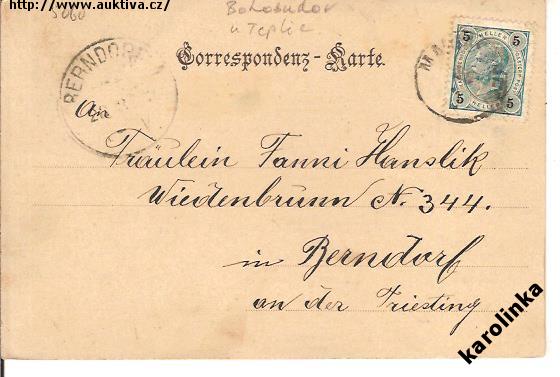 http://www.auktiva.cz/
5060
Bohosudov
u Teplic
Correspondenz-Karte.
BERNDORF
5 HELLER 5
5 HELLER 5
An
Fräulein Fanni Hanslik
Wiedenbrunn N. 344.
in Berndorf
an der Triesting
karolinka